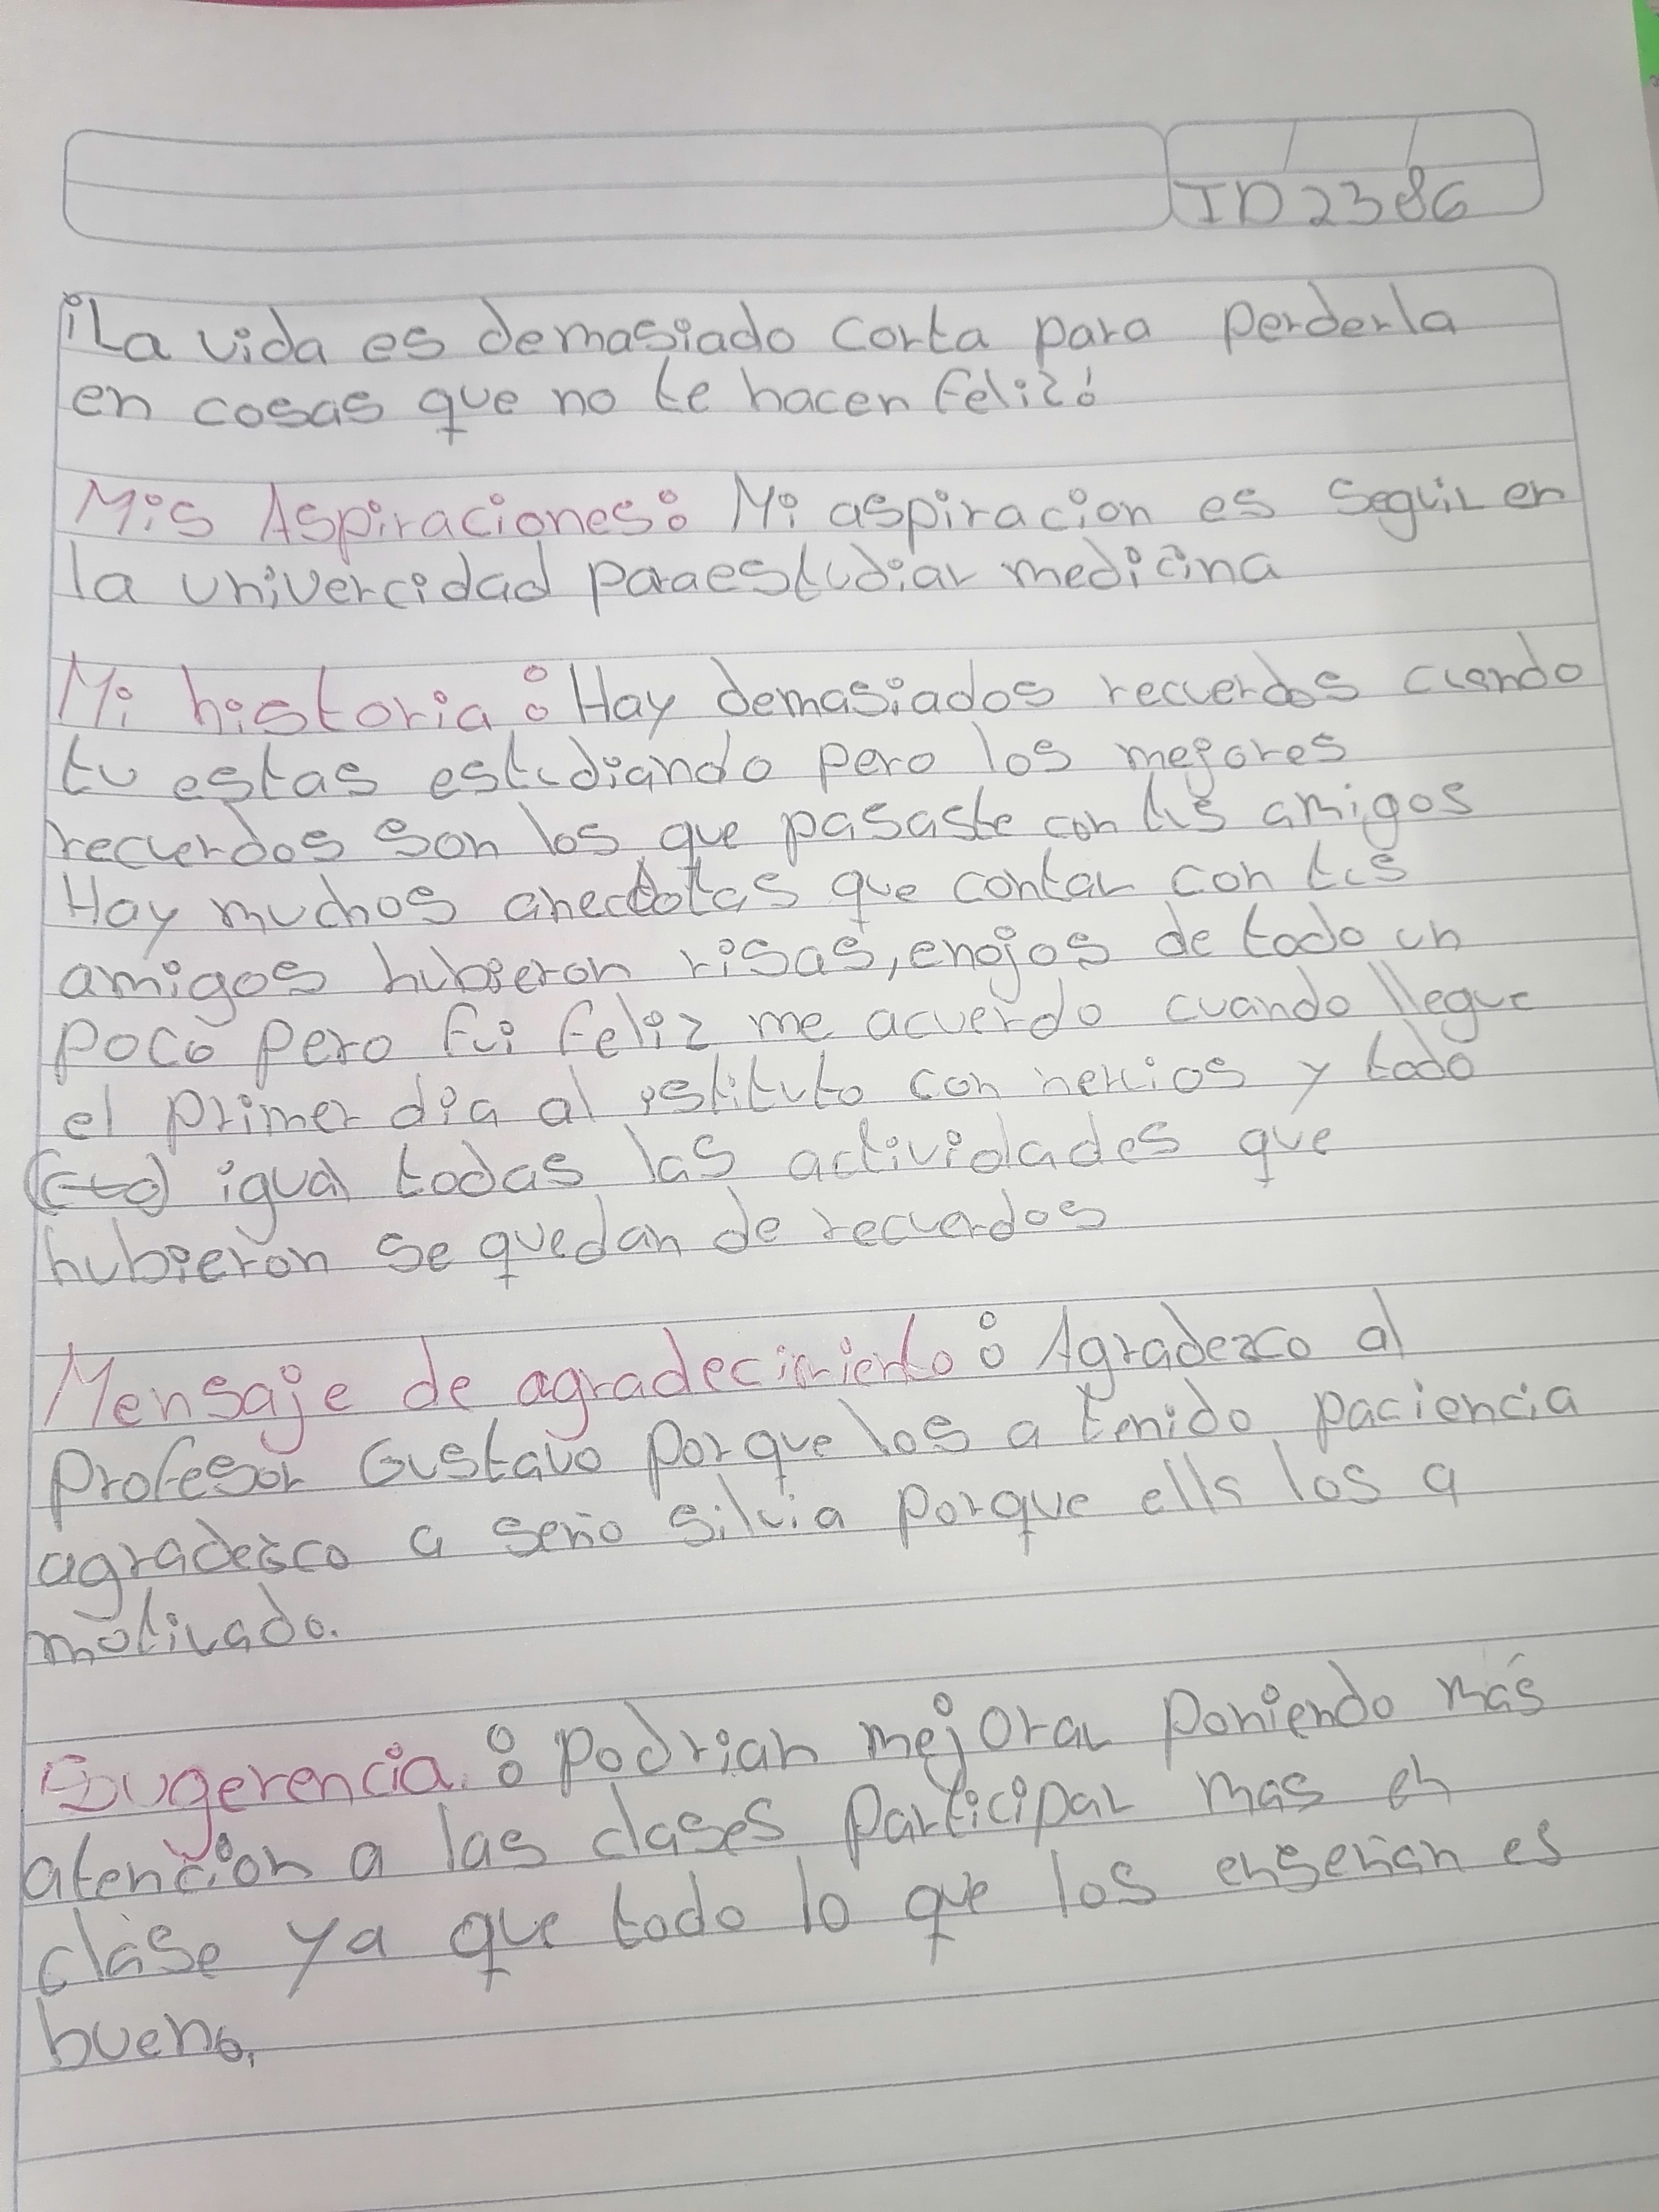 ID2386
¡La vida es demasiado corta para perderla
en cosas que no te hacen feliz!
Mis Aspiraciones: Mi aspiracion es seguir en
la univercidad paraestudiar medicina
Mi historia: Hay demasiados recuerdos cuando
tu estas estudiando pero los mejores
recuerdos son los que pasaste con tus amigos
Hay muchos anecdotas que contar con tus
amigos hubieron risas, enojos de todo un
poco pero fui feliz me acuerdo cuando llegue
el primer dia al istituto con nervios y todo
igual todas las actividades que
hubieron se quedan de recuerdos
Mensaje de agradecimiento: Agradezco al
profesor Gustavo porque los a tenido paciencia
agradezco a seño silvia porque ella los a
motivado.
Sugerencia: Podrian mejorar poniendo más
atencion a las clases participar mas en
clase ya que todo lo que los enseñan es
bueno.